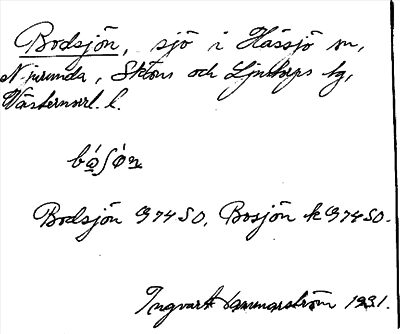 Bodsjön, sjö i Hässjö sn,
Njurunda, Sköns och Ljustorps tg,
Västernorrl. l.
bǫ́ʃǿn
Bodsjön G74SO, Bosjön k G74SO.
Ingvar Hammarström 1931.